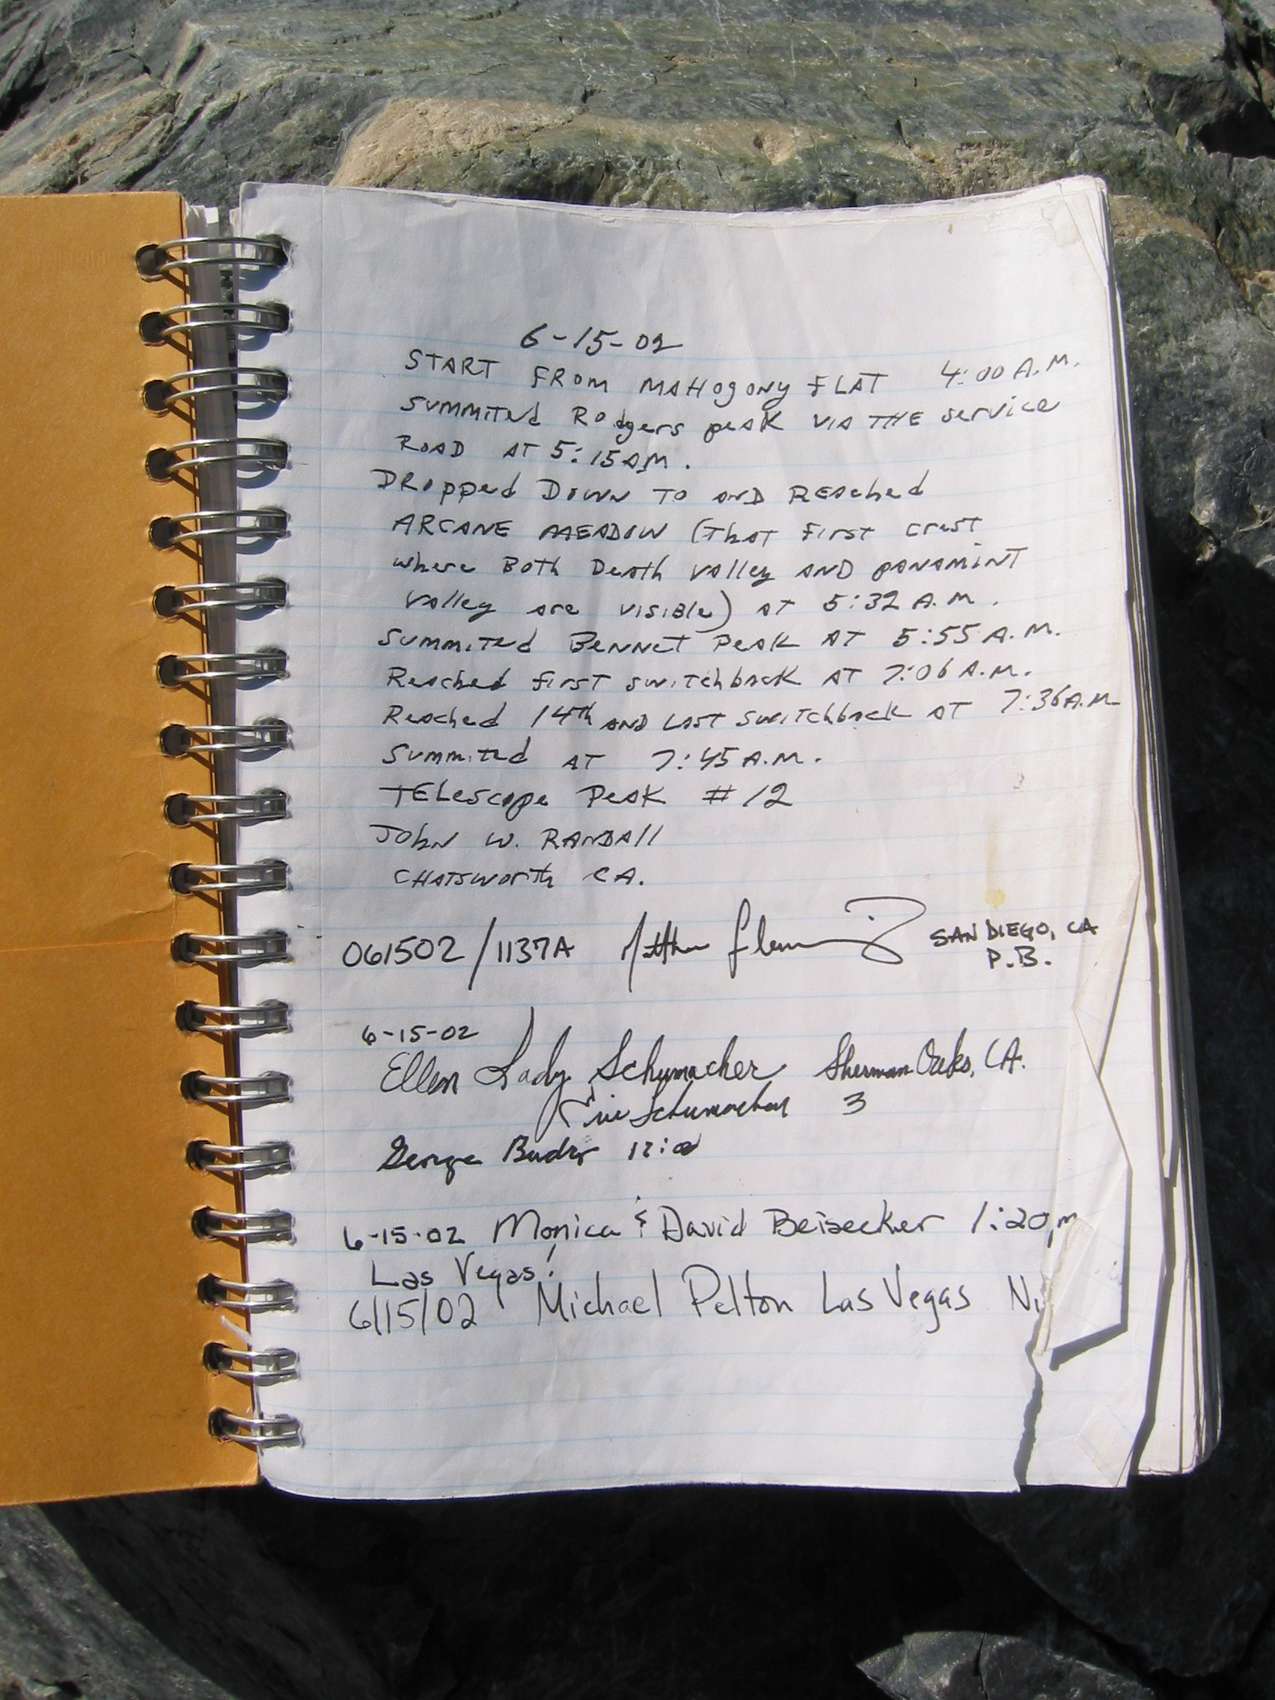 6-15-02
START FROM MAHOGONY FLAT 4:00 A.M.
SUMMITED Rodgers peak VIA THE service
ROAD AT 5:15AM.
DROpped DOWN TO AND REAched
ARCANE MEADOW (That first crest
where Both Death valley AND panamint
valley are visible) AT 5:32 A.M.
Summited Bennet Peak AT 5:55 A.M.
Reached first switchback AT 7:06 A.M.
Reached 14th AND LAST switchback AT 7:36 A.M
Summited AT 7:45 A.M.
TELescope Peak #12
John W. RANDAll
CHATSWOrTh CA.
061502/1137A Matthew SAN DIEGO, CA
P.B.
6-15-02
Ellen Lady Schumacher Sherman Oaks, CA.
Eric Schumacher 3
George
6-15-02 Monica & David Beisecker 1:20pm
Las Vegas!
6/15/02 Michael Pelton Las Vegas